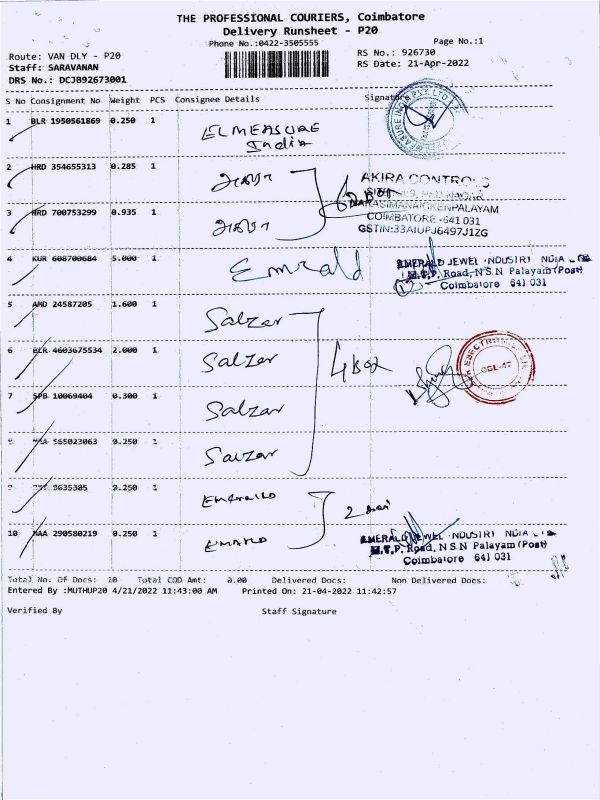 THE PROFESSIONAL COURIERS, Coimbatore
Delivery Runsheet - P20
Phone No.:0422-3505555
Page No.:1
Route: VAN DLY - P20
RS No.: 926730
Staff: SARAVANAN
RS Date: 21-Apr-2022
DRS No.: DCJB92673001
S No Consignment No Weight PCS Consignee Details Signature
1 BLR 1950561869 0.250 1 ELMEASURE India
2 HRD 354655313 0.285 1
AKIRA CONTROLS
NARASIMANAICKENPALAYAM
COIMBATORE -641 031
GSTIN:33AIUPJ6497J1ZG
3 HRD 700753299 0.935 1
4 KUR 608700684 5.000 1 Emerald
EMERALD JEWEL INDUSTRY INDIA
M.T.P. Road, N.S.N Palayam (Post)
Coimbatore 641 031
5 AMD 24587205 1.600 1 Salzer
6 BLR 4603675534 2.000 1 Salzer
4 Box
7 SPB 10069404 0.300 1 Salzer
8 MAA 565023063 0.250 1 Salzer
9 9635305 0.250 1 Emerald
2
10 MAA 290580219 0.250 1 Emerald
EMERALD JEWEL INDUSTRY INDIA LTD
M.T.P. Road, N.S.N Palayam (Post)
Coimbatore 641 031
Total No. Of Docs: 10 Total COD Amt: 0.00 Delivered Docs: Non Delivered Docs:
Entered By :MUTHUP20 4/21/2022 11:43:00 AM Printed On: 21-04-2022 11:42:57
Verified By Staff Signature